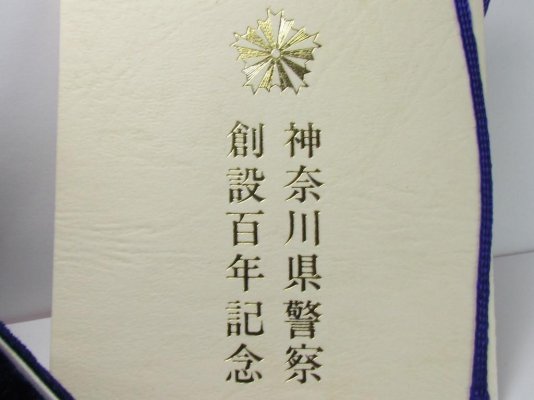 神奈川県警察
創設百年記念